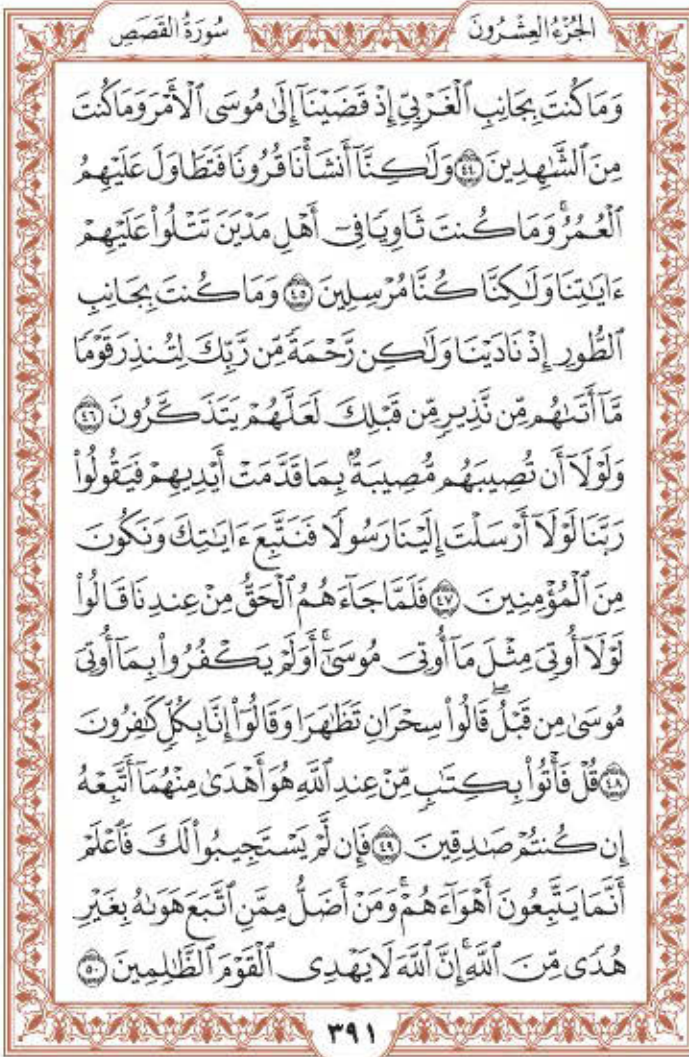 الجُزْءُ العِشْرُونَ
سُورَةُ القَصَصِ
وَمَا كُنتَ بِجَانِبِ ٱلْغَرْبِيِّ إِذْ قَضَيْنَآ إِلَىٰ مُوسَى ٱلْأَمْرَ وَمَا كُنتَ
مِنَ ٱلشَّٰهِدِينَ ٤٤ وَلَٰكِنَّآ أَنشَأْنَا قُرُونًا فَتَطَاوَلَ عَلَيْهِمُ
ٱلْعُمُرُۚ وَمَا كُنتَ ثَاوِيًا فِىٓ أَهْلِ مَدْيَنَ تَتْلُوا۟ عَلَيْهِمْ
ءَايَٰتِنَا وَلَٰكِنَّا كُنَّا مُرْسِلِينَ ٤٥ وَمَا كُنتَ بِجَانِبِ
ٱلطُّورِ إِذْ نَادَيْنَا وَلَٰكِن رَّحْمَةً مِّن رَّبِّكَ لِتُنذِرَ قَوْمًا
مَّآ أَتَىٰهُم مِّن نَّذِيرٍ مِّن قَبْلِكَ لَعَلَّهُمْ يَتَذَكَّرُونَ ٤٦
وَلَوْلَآ أَن تُصِيبَهُم مُّصِيبَةٌۢ بِمَا قَدَّمَتْ أَيْدِيهِمْ فَيَقُولُوا۟
رَبَّنَا لَوْلَآ أَرْسَلْتَ إِلَيْنَا رَسُولًا فَنَتَّبِعَ ءَايَٰتِكَ وَنَكُونَ
مِنَ ٱلْمُؤْمِنِينَ ٤٧ فَلَمَّا جَآءَهُمُ ٱلْحَقُّ مِنْ عِندِنَا قَالُوا۟
لَوْلَآ أُوتِىَ مِثْلَ مَآ أُوتِىَ مُوسَىٰٓۚ أَوَلَمْ يَكْفُرُوا۟ بِمَآ أُوتِىَ
مُوسَىٰ مِن قَبْلُۖ قَالُوا۟ سِحْرَانِ تَظَٰهَرَا وَقَالُوٓا۟ إِنَّا بِكُلٍّ كَٰفِرُونَ
٤٨ قُلْ فَأْتُوا۟ بِكِتَٰبٍ مِّنْ عِندِ ٱللَّهِ هُوَ أَهْدَىٰ مِنْهُمَآ أَتَّبِعْهُ
إِن كُنتُمْ صَٰدِقِينَ ٤٩ فَإِن لَّمْ يَسْتَجِيبُوا۟ لَكَ فَٱعْلَمْ
أَنَّمَا يَتَّبِعُونَ أَهْوَآءَهُمْۚ وَمَنْ أَضَلُّ مِمَّنِ ٱتَّبَعَ هَوَىٰهُ بِغَيْرِ
هُدًى مِّنَ ٱللَّهِۚ إِنَّ ٱللَّهَ لَا يَهْدِى ٱلْقَوْمَ ٱلظَّٰلِمِينَ ٥٠
٣٩١